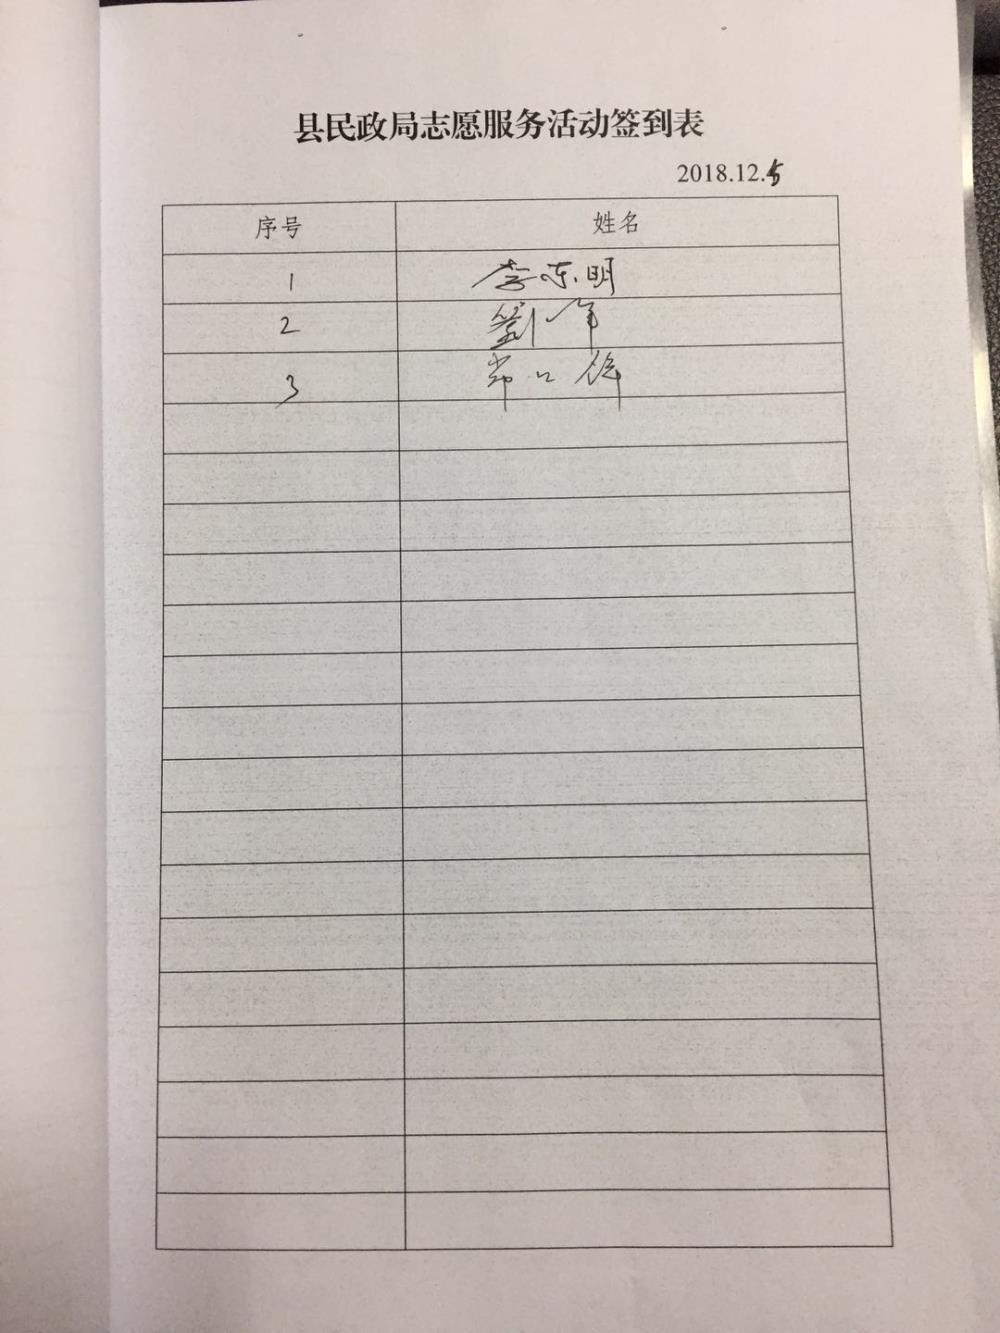 县民政局志愿服务活动签到表
2018.12.5
序号 姓名
1 李东明
2 劉军
3 常